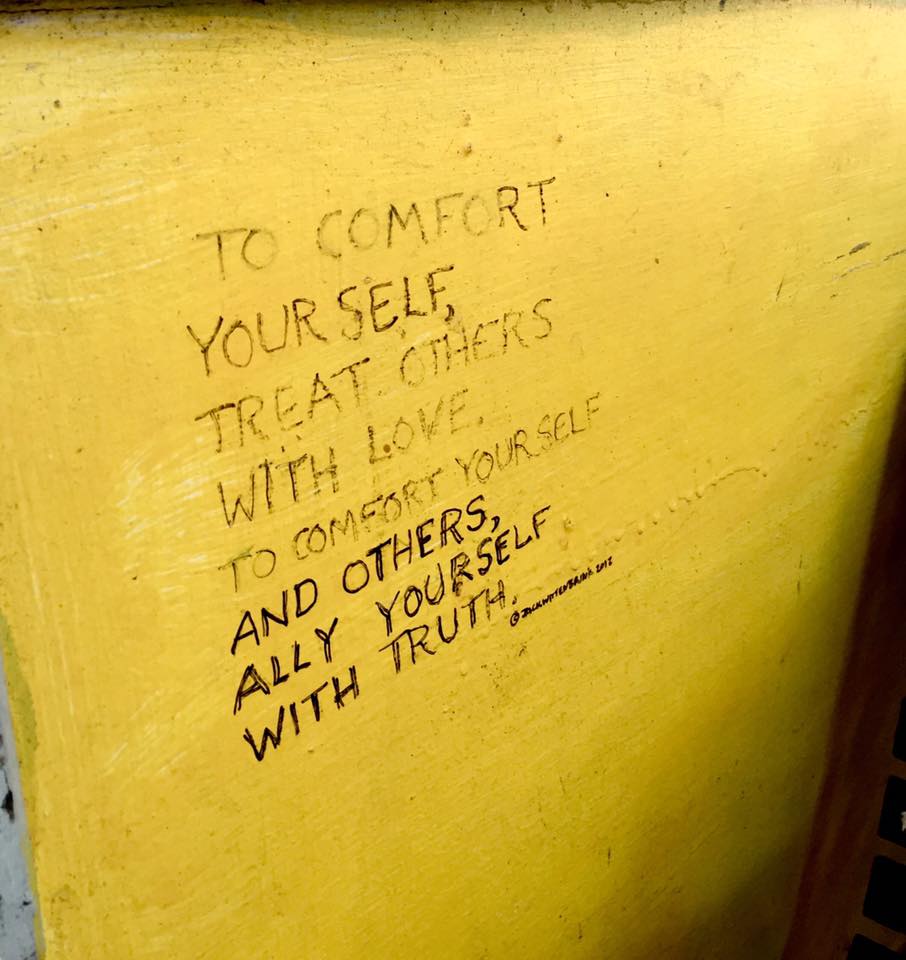 TO COMFORT
YOURSELF,
TREAT OTHERS
WITH LOVE.
TO COMFORT YOURSELF
AND OTHERS,
ALLY YOURSELF
WITH TRUTH.
© JACK WITTENBRINK 2012